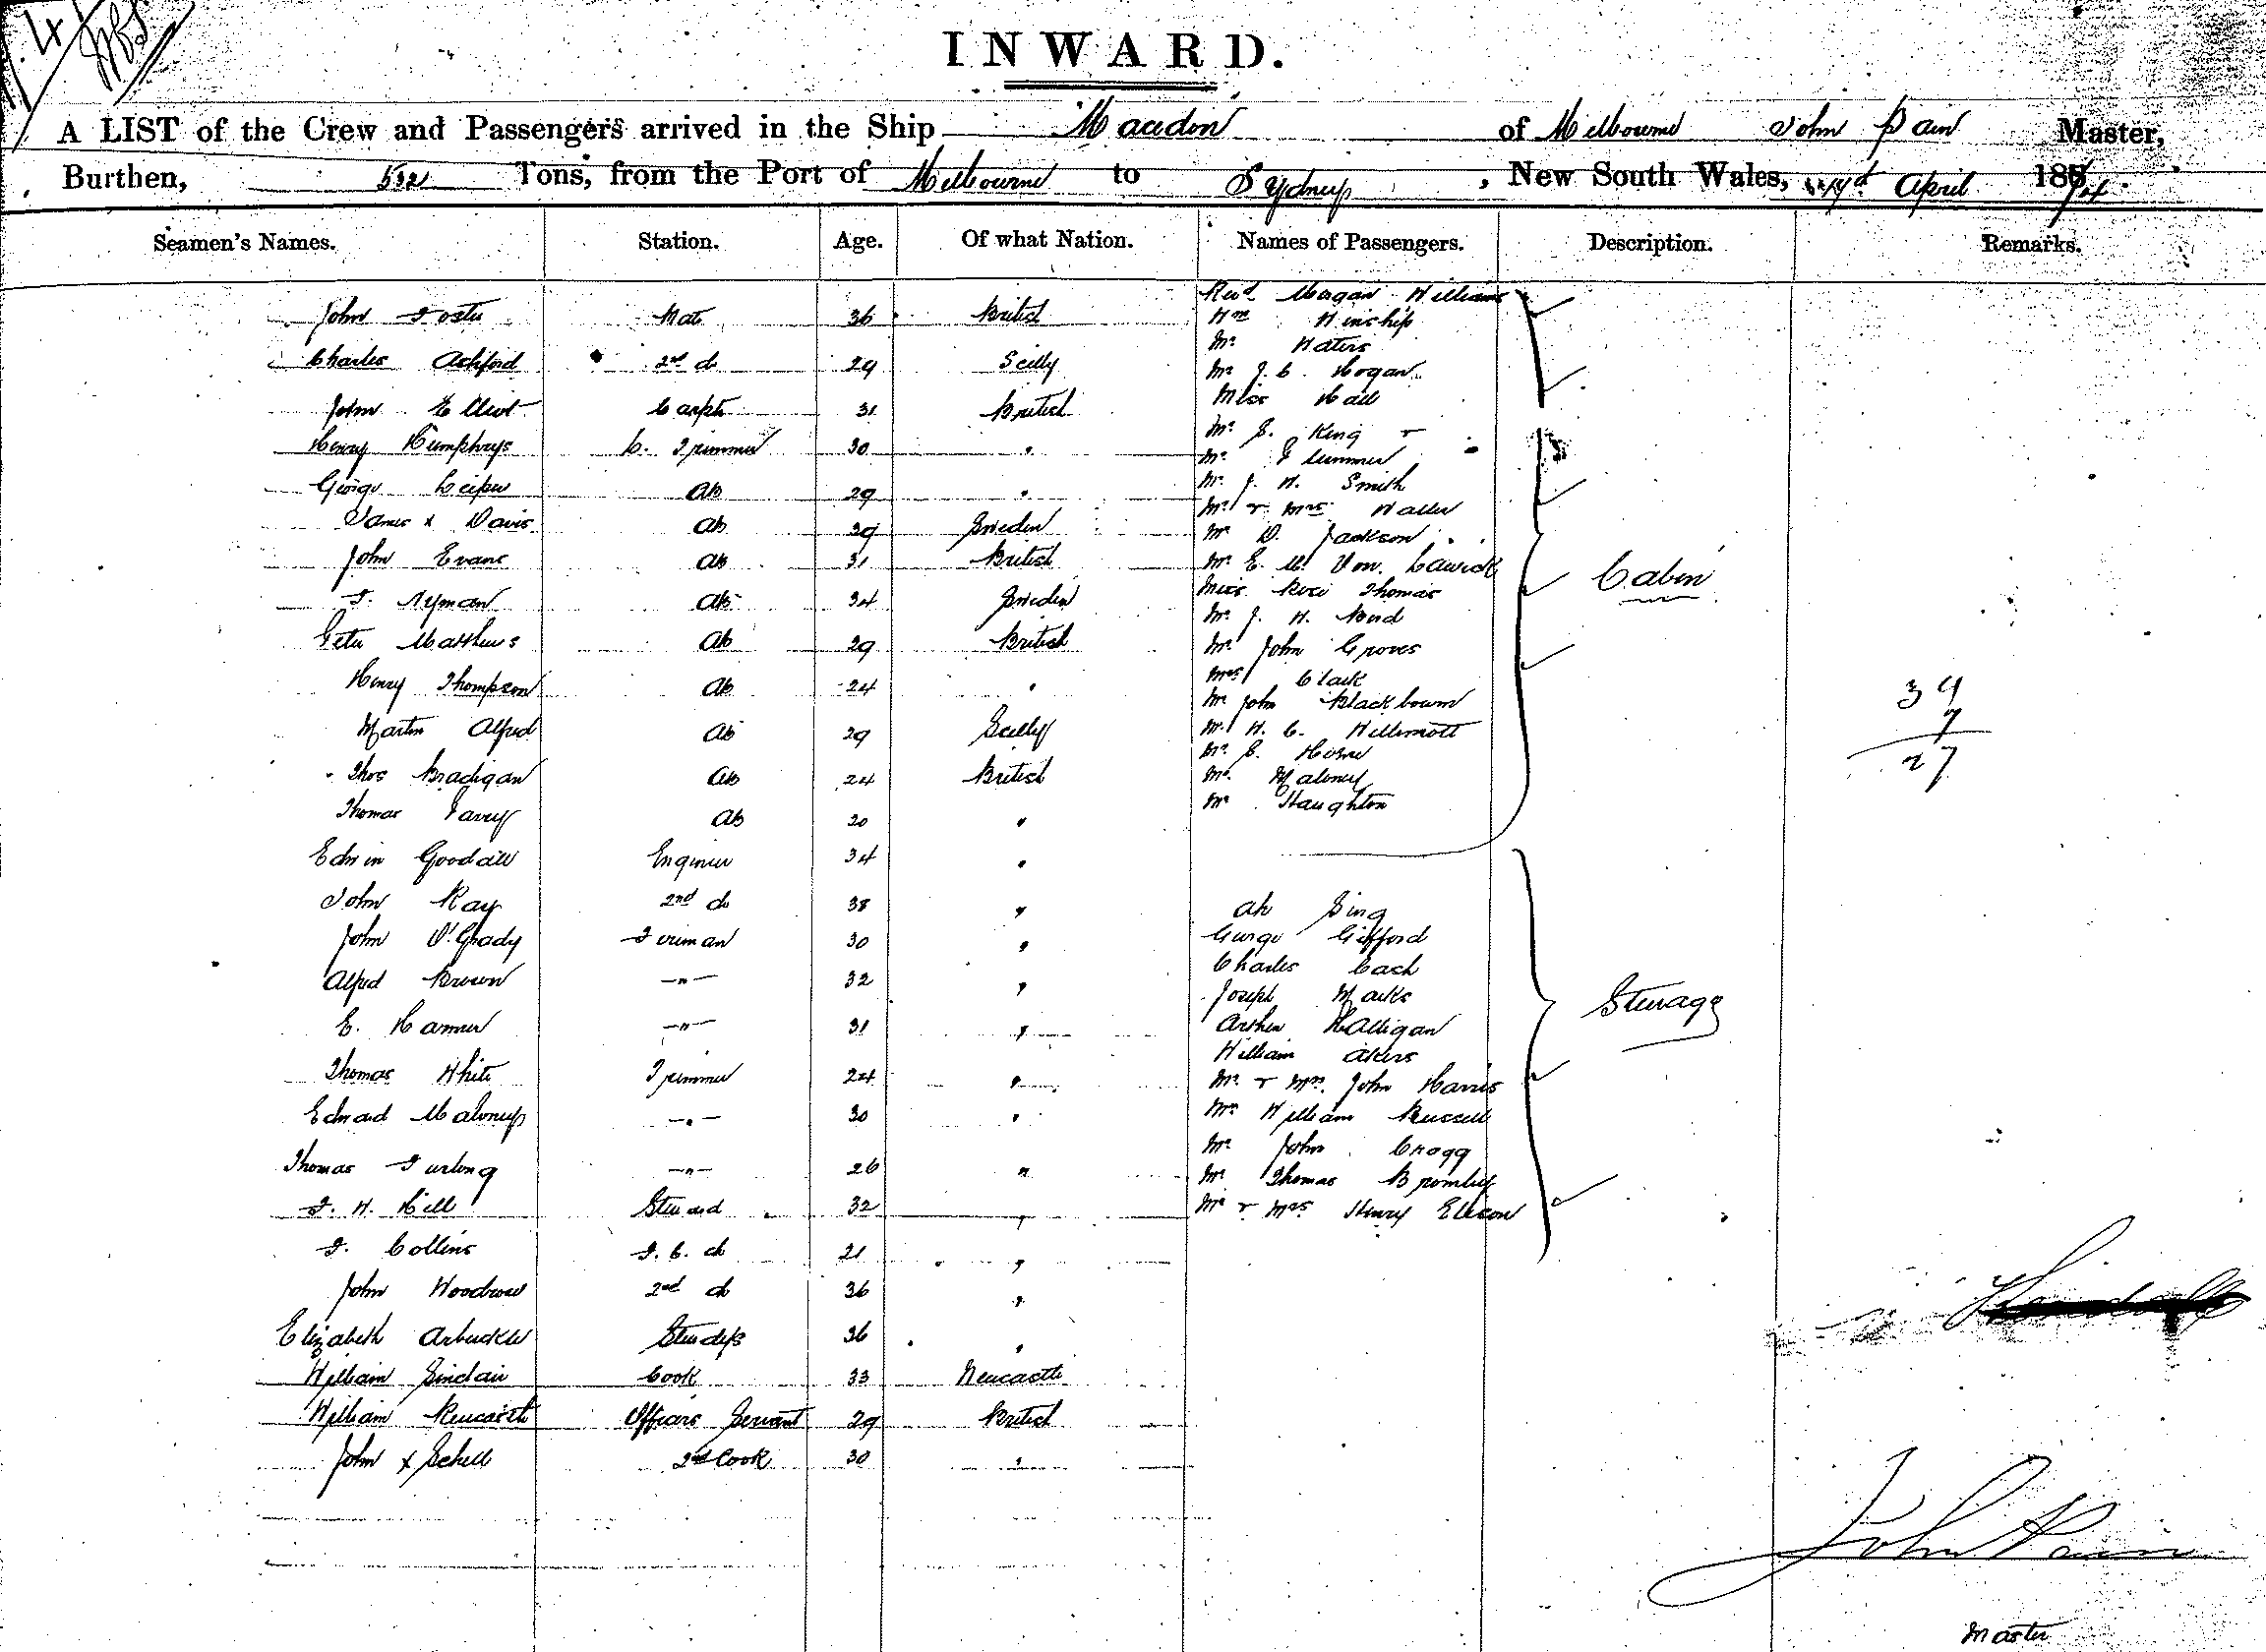 INWARD.
A LIST of the Crew and Passengers arrived in the Ship Macedon of Melbourne John Pain Master,
Burthen, 532 Tons, from the Port of Melbourne to Sydney, New South Wales, April 1874.
Seamen's Names. Station. Age. Of what Nation. Names of Passengers. Description. Remarks.
John Foster Mate 36 British
Charles Ashford 2nd do 29 Scilly
John Elliot Carptr 31 British
Henry Humphrys C. Trimmer 30 "
George 29 "
James x Davis AB 29 Sweden
John Evans AB 31 British
F. Nyman AB 34 Sweden
Peter Matthews AB 29 British
Henry Thompson AB 24 "
Martin Alfred AB 29 Scilly
Thos Bradigan AB 24 British
Thomas Garvey AB 20 "
Edwin Goodall Engineer 34 "
John Ray 2nd do 38 "
John O'Grady Fireman 30 "
Alfred Brown —"— 32 "
E. Hanner —"— 31 "
Thomas White Trimmer 24 "
Edward Maloney —"— 30 "
Thomas Furlong —"— 26 "
F. H. Hill Steward 32 "
F. Collins F. C. do 21 "
John Woodrow 2nd do 36 "
Elizabeth Arbuckle Stewdess 36 "
William Sinclair Cook 33 Newcastle
William Newcastle Officers Servant 29 British
John x Schell 2nd Cook 30 "
Revd Morgan Williams
Wm Winship
Mr Waters
Mr J. C. Hogan
Miss Hall
Mr S. King
Mr Summer
Mr J. H. Smith
Mr & Mrs Waller
Mr D. Jackson
Mr E. M. Von. Lawick
Miss Rose Thomas
Mr J. H. Bird
Mr John Groves
Mrs Clark
Mr John Blackbourn
Mr H. C. Willimott
Mr S. Horne
Mr Maloney
Mr Haughton
Cabin
Ah Sing
George Gifford
Charles Cash
Joseph Marks
Arthur Halligan
William Akers
Mr & Mrs. John Harris
Mr William Russell
Mr John Cragg
Mr Thomas Bromley
Mr & Mrs Henry Ellison
Steerage
27
John Pain
Master